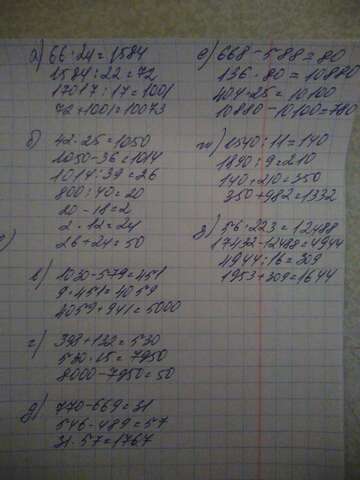 а) 66·24=1584
1584:22=72
17017:17=1001
72+1001=10073
б) 42·25=1050
1050-36=1014
1014:39=26
800:40=20
20-18=2
2·12=24
26+24=50
в) 1030-579=451
9·451=4059
4059+941=5000
г) 398+132=530
530·15=7950
8000-7950=50
д) 770-669=31
546-489=57
31·57=1767
е) 668-588=80
136·80=10880
404·25=10100
10880-10100=780
ж) 1540:11=140
1890:9=210
140+210=350
350+982=1332
з) 56·223=12488
17432-12488=4944
4944:16=309
1953+309=1644